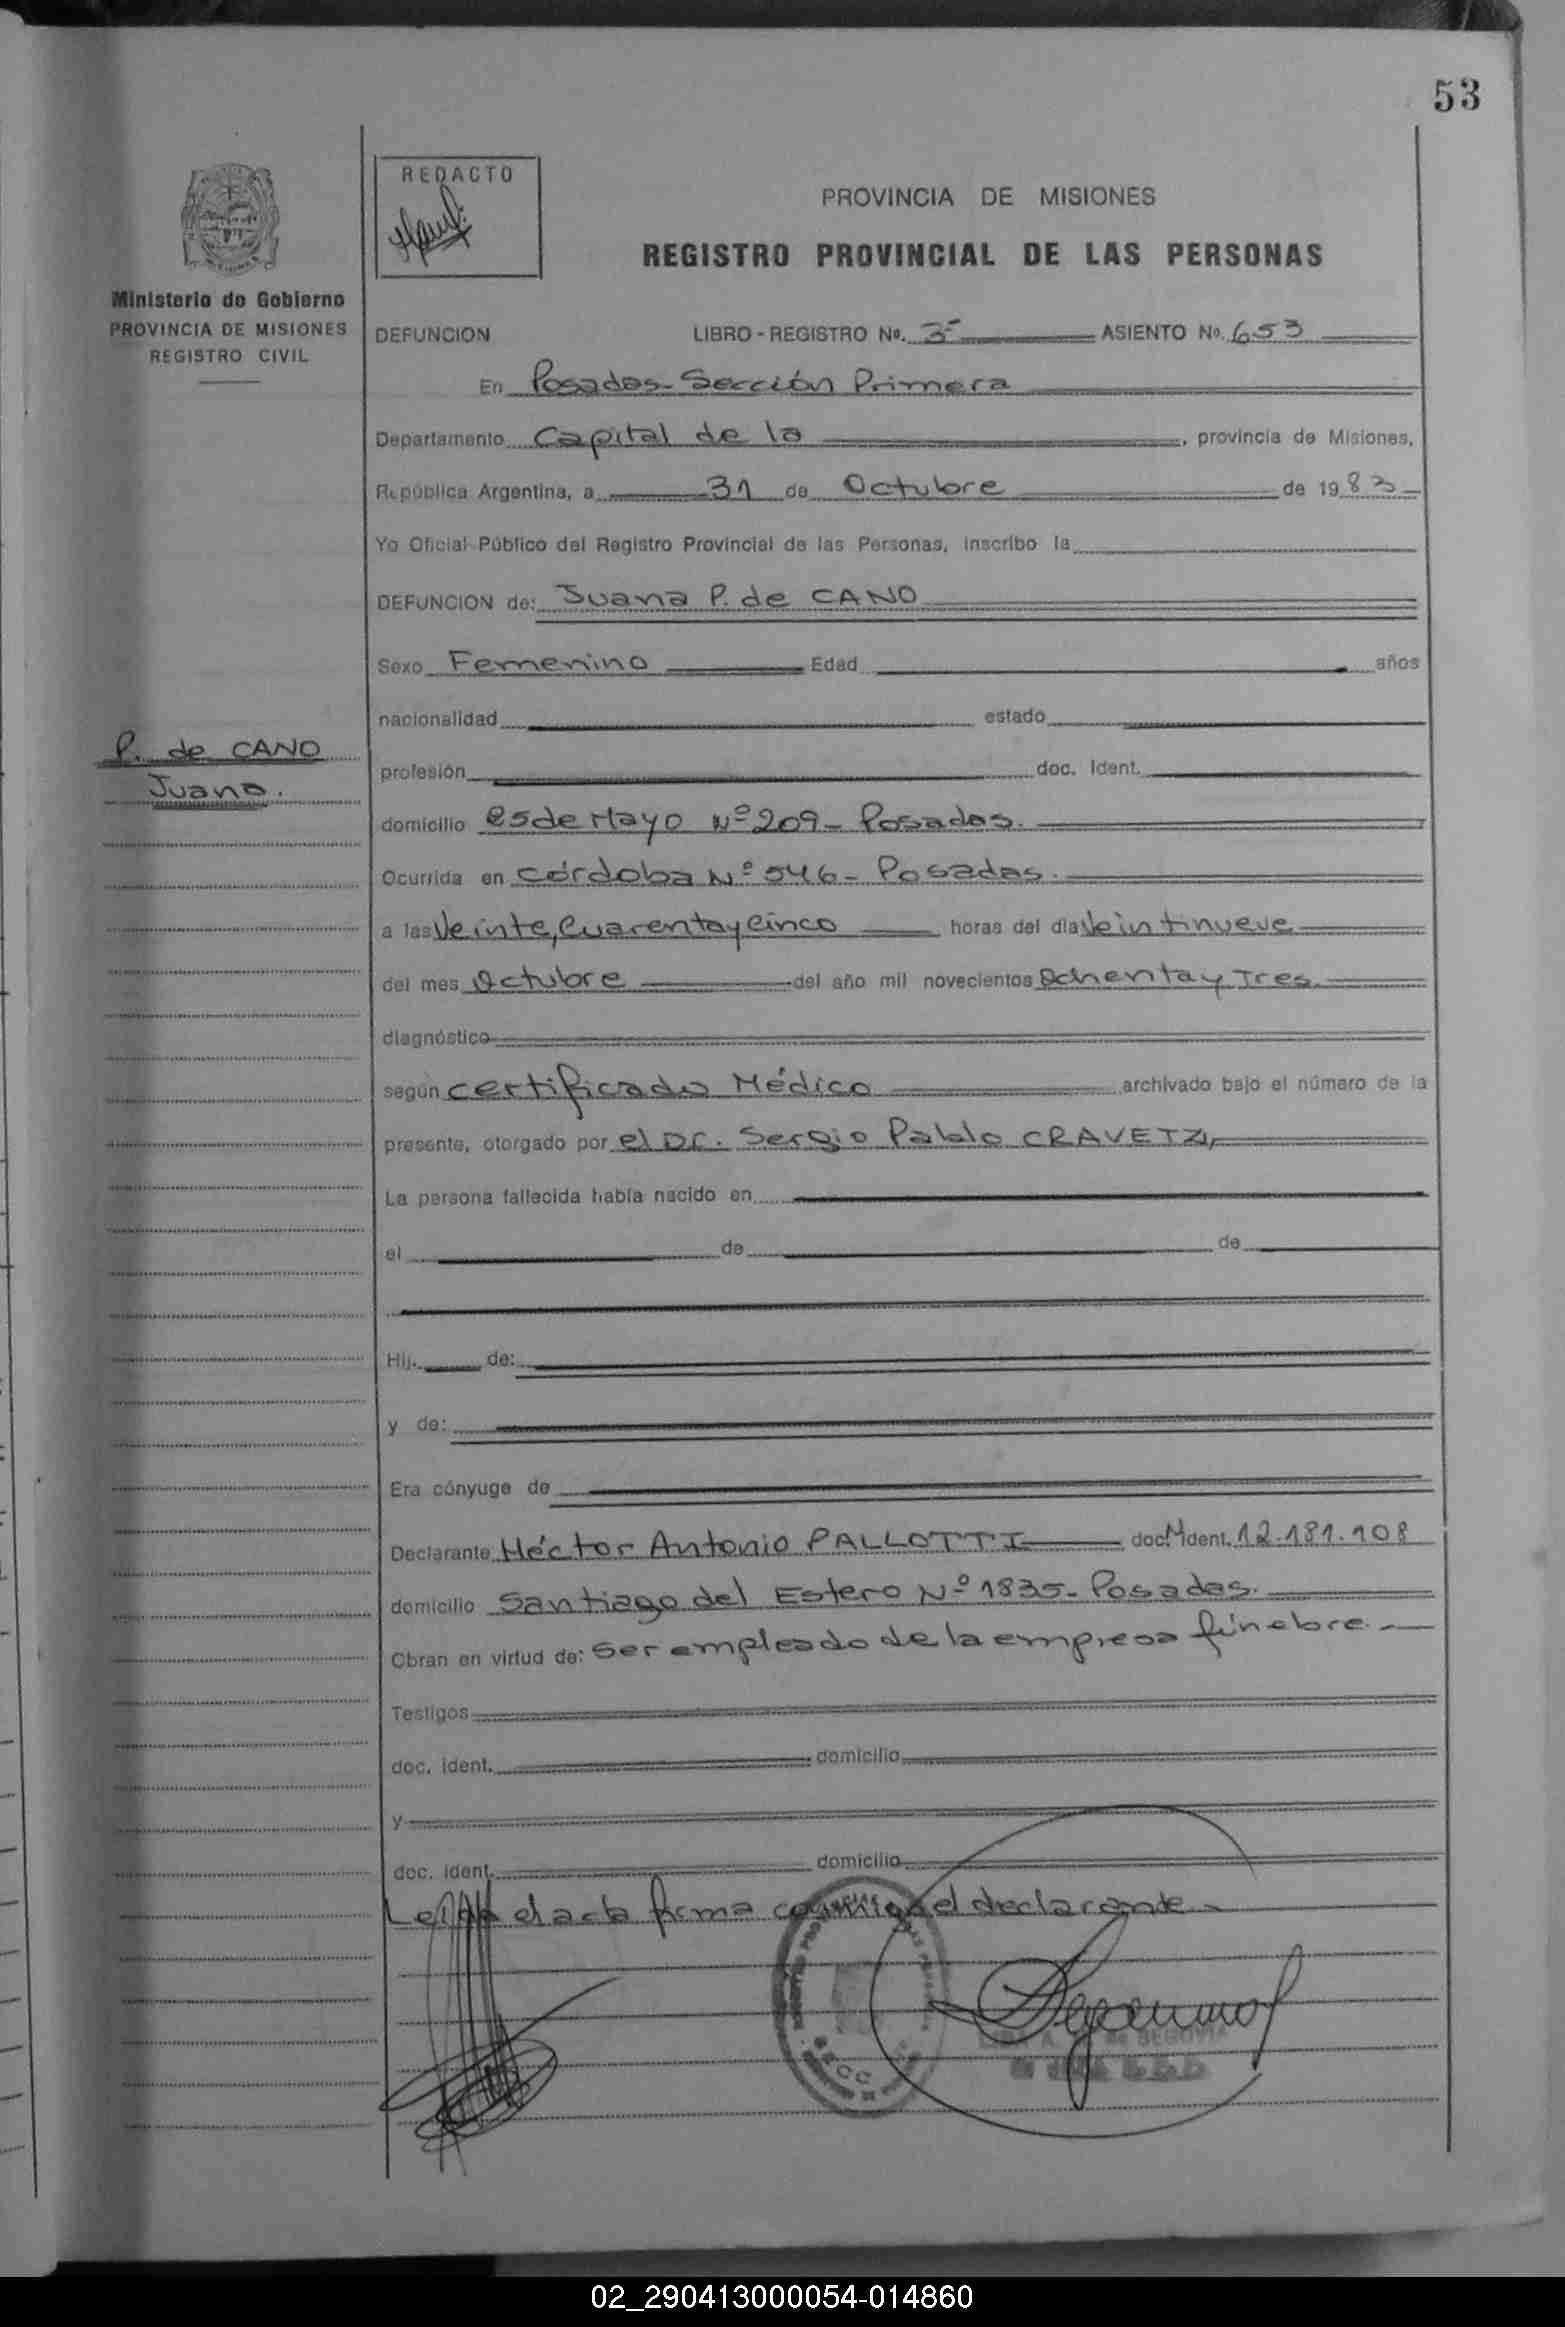 53
REDACTO
PROVINCIA DE MISIONES
REGISTRO PROVINCIAL DE LAS PERSONAS
Ministerio de Gobierno
PROVINCIA DE MISIONES
REGISTRO CIVIL
DEFUNCION LIBRO - REGISTRO No. 3- ASIENTO No. 653
En Posadas - Sección Primera
Departamento Capital de la , provincia de Misiones,
República Argentina, a 31 de Octubre de 1983
Yo Oficial Público del Registro Provincial de las Personas, inscribo la
DEFUNCION de: Juana P. de CANO
Sexo Femenino Edad años
nacionalidad estado
P. de CANO
Juana.
profesión doc. Ident.
domicilio 25 de Mayo Nº 209 - Posadas.
Ocurrida en Córdoba Nº 546 - Posadas.
a las Veinte, Cuarenta y Cinco horas del día Veintinueve
del mes Octubre del año mil novecientos Ochenta y Tres
diagnóstico
según certificado Médico archivado bajo el número de la
presente, otorgado por el Dr. Sergio Pablo CRAVETZ,
La persona fallecida había nacido en
el de de
Hij. de:
y de:
Era cónyuge de
Declarante Héctor Antonio PALLOTTI doc. Ident. 12.181.108
domicilio Santiago del Estero Nº 1835 - Posadas.
Obran en virtud de: Ser empleado de la empresa fúnebre.
Testigos
doc. ident. domicilio
y
doc. ident. domicilio
Leída el acta firma conmigo el declarante.-
SEGOVIA
02_290413000054-014860